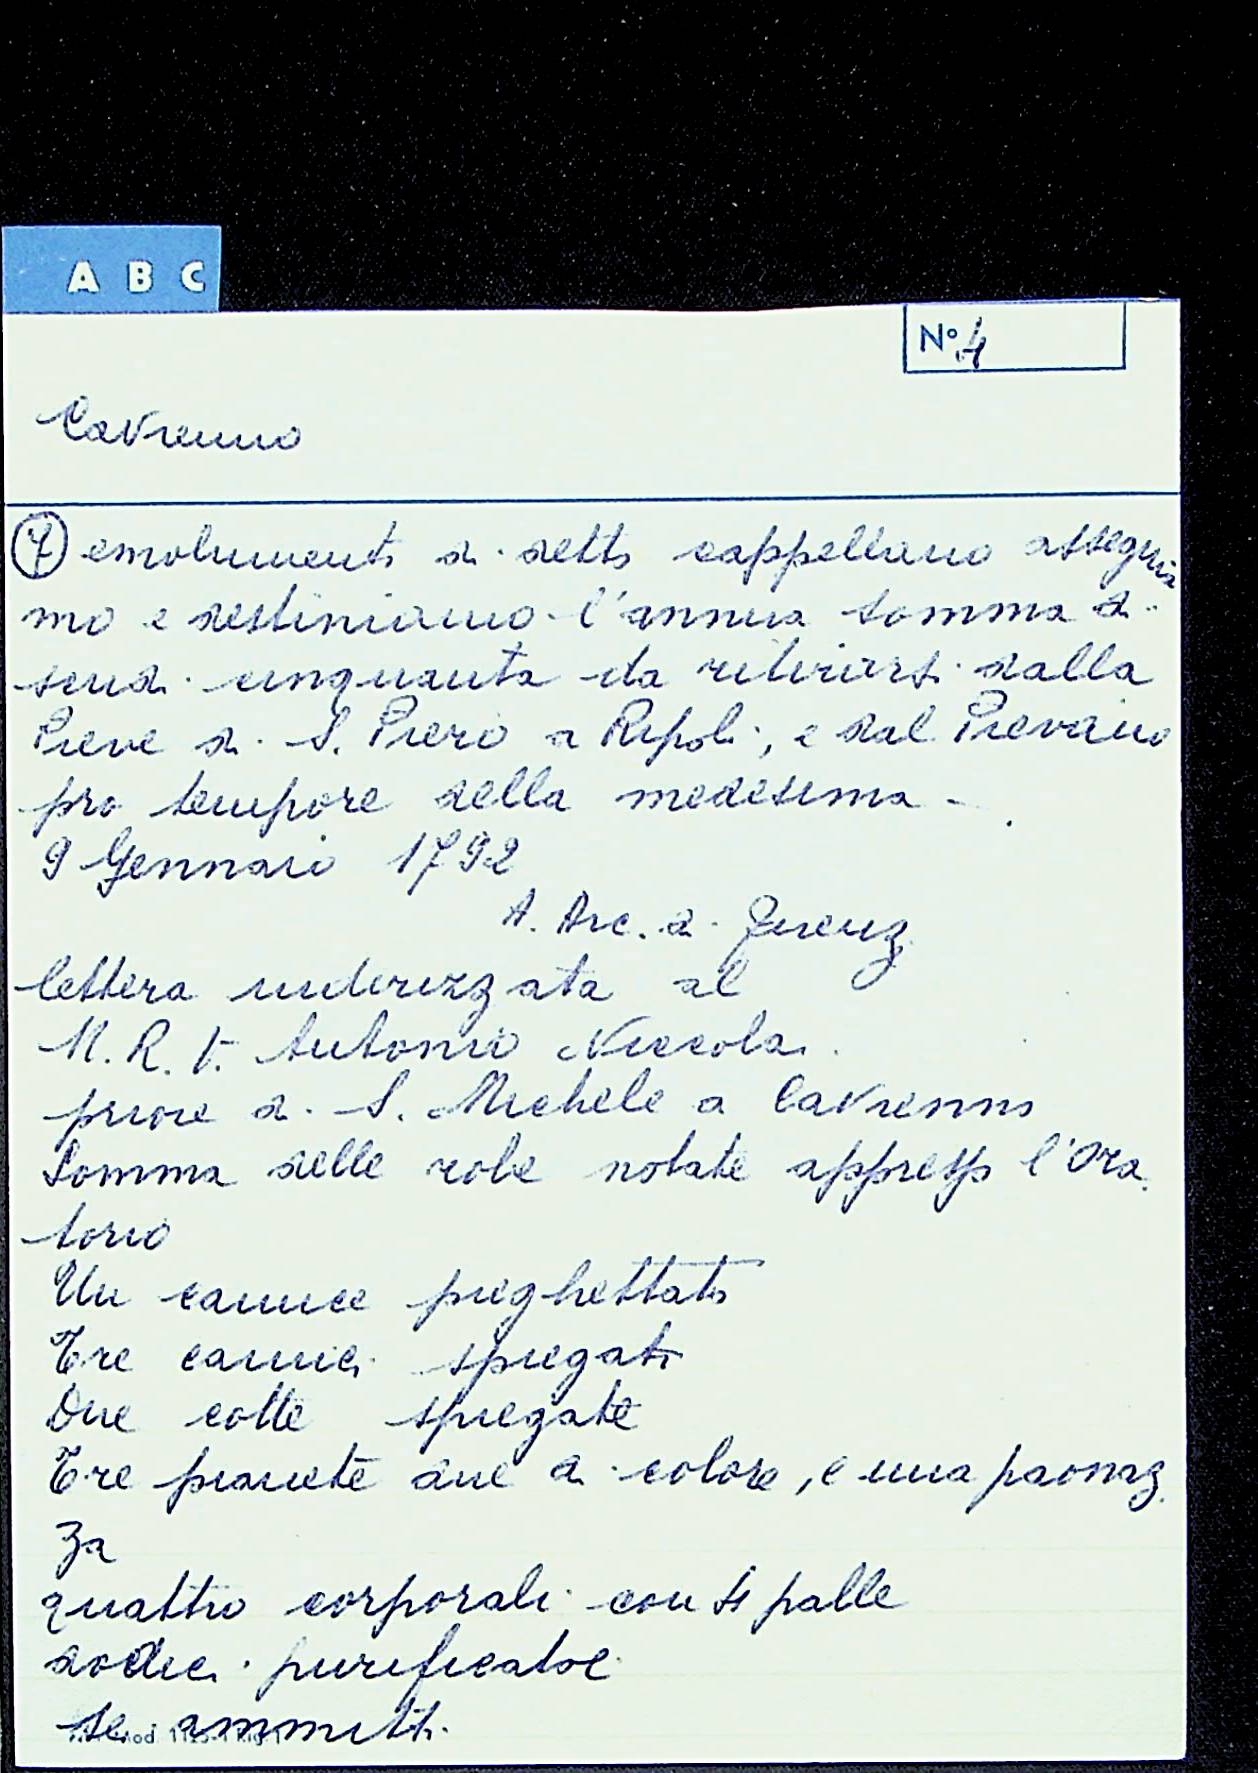 A B C
N° 4
Cavrenno
7 emolumenti di detto cappellano assegnia
mo e destiniamo l'annua somma di
scudi cinquanta da ritirarsi dalla
Pieve di S. Piero a Ripoli, e dal Pievano
pro tempore della medesima -
9 Gennaio 1792
A. Arc. di Firenz
lettera indirizzata al
M. R. Antonio Niccolai
priore di S. Michele a Cavrenno
Somma delle robe notate appresso l'Ora
torio
Un camice pieghettato
Tre camici spiegati
Due cotte spiegate
Tre pianete due di colore, e una paonaz
za
quattro corporali con 4 palle
dodici purificatoi
sei ammitti